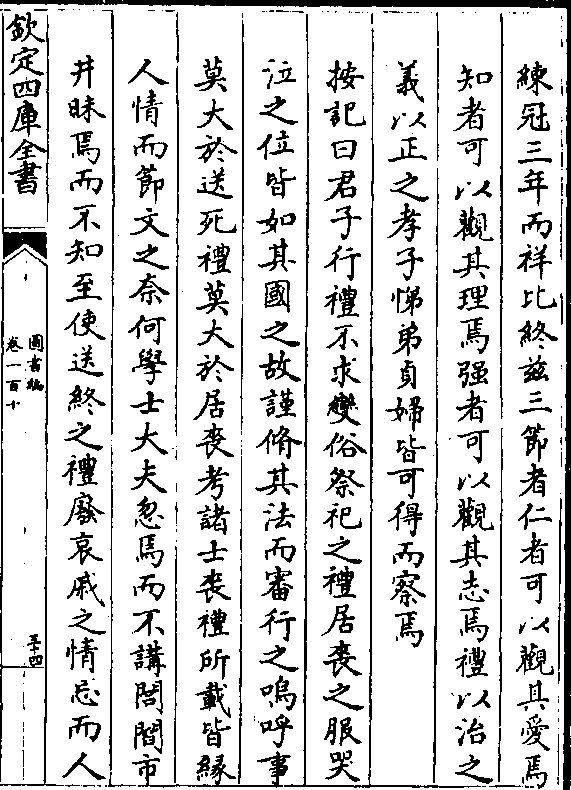 練冠三年而祥比終兹三節者仁者可以觀其愛焉
知者可以觀其理焉强者可以觀其志焉禮以治之
義以正之孝子悌弟貞婦皆可得而察焉
按記曰君子行禮不求變俗祭祀之禮居喪之服哭
泣之位皆如其國之故謹脩其法而審行之嗚呼事
莫大於送死禮莫大於居喪考諸士喪禮所載皆緣
人情而節文之奈何學士大夫忽焉而不講閭閻市
井昧焉而不知至使送終之禮廢哀戚之情忘而人
欽定四庫全書
圖書編
卷一百十
五十四